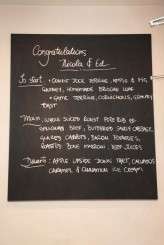 Congratulations
Nicola & Ed
To Start : Confit Duck Terrine, Apple & Fig
Chutney, Homemade Brioche Loaf
+ Game Terrine, Cornichons, Granary
Toast
Main : Whole Sliced Roast Fore Rib of
Beef, Buttered Savoy Cabbage,
Glazed Carrots, Potatoes,
Roasted Bone Marrow, Beef Jus.
Dessert : Apple Upside Down Tart, Calvados
Caramel & Cinnamon Ice Cream